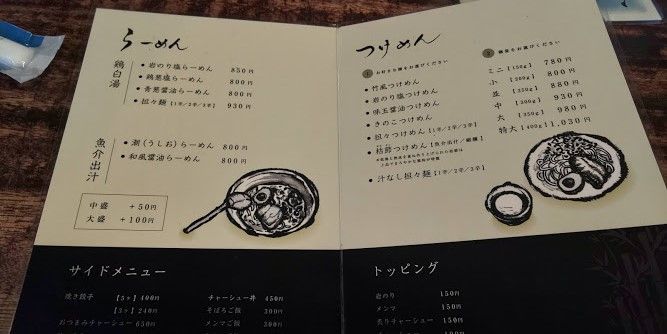 らーめん
鶏白湯
• 岩のり塩らーめん 850円
• 鶏葱塩らーめん 800円
• 青葱醤油らーめん 800円
• 担々麺【1辛/2辛/3辛】 930円
魚介出汁
• 潮(うしお)らーめん 800円
• 和風醤油らーめん 800円
中盛 +50円
大盛 +100円
サイドメニュー
焼き餃子 【5ヶ】400円
【3ヶ】240円
おつまみチャーシュー 650円
チャーシュー丼 450円
そぼろご飯 300円
メンマご飯 300円
つけめん
1 お好きな麺をお選びください
• 竹風つけめん
• 岩のり塩つけめん
• 味玉醤油つけめん
• きのこつけめん
• 担々つけめん【1辛/2辛/3辛】
• 桔節つけめん【魚介出汁/細麺】
• 汁なし担々麺【1辛/2辛/3辛】
2 麺量をお選びください
ミニ【150g】 780円
小【200g】 800円
並【250g】 880円
中【300g】 930円
大【350g】 980円
特大【400g】1,030円
トッピング
岩のり 150円
メンマ 150円
炙りチャーシュー 150円